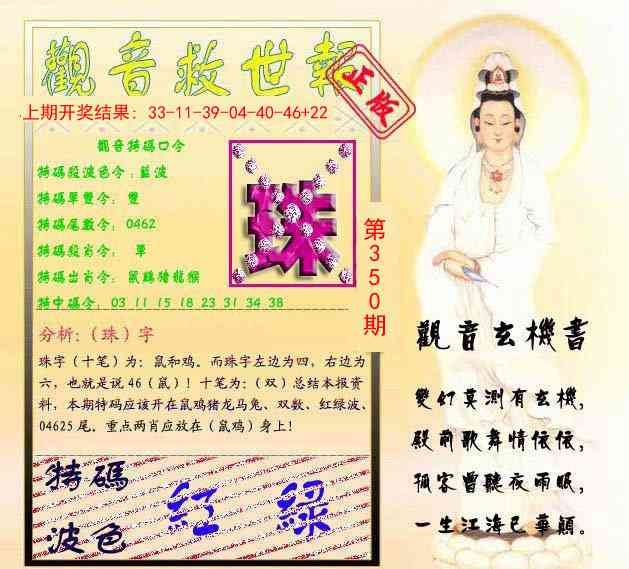 觀音救世報
正版
上期开奖结果：33-11-39-04-40-46+22
觀音特碼口令
特碼殺波色令：藍波
特碼單雙令： 雙
特碼尾數令： 0462
特碼殺肖令： 單
特碼出肖令： 鼠鷄猪龍猴
特中碼令： 03 11 15 18 23 31 34 38
珠
第350期
分析：（珠）字
珠字（十笔）为：鼠和鸡。而珠字左边为四，右边为
六，也就是说46（鼠）！十笔为：（双）总结本报资
料，本期特码应该开在鼠鸡猪龙马兔、双数、红绿波、
04625尾。重点两肖应放在（鼠鸡）身上！
特碼
波色
紅 綠
觀音玄機書
變幻莫測有玄機，
殿前歌舞情依依，
孤客曾聽夜雨眠，
一生江海已華顛。